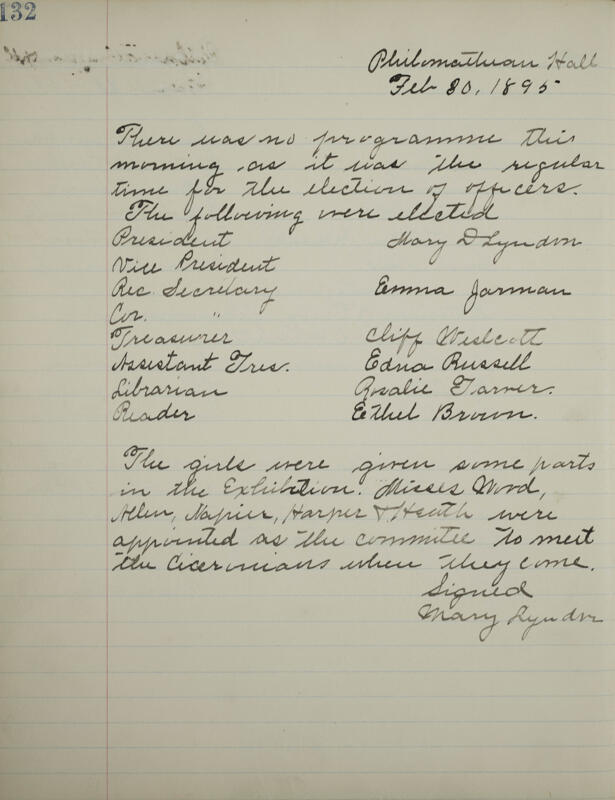 132
Philomathean Hall
Feb 20, 1895
There was no programme this
morning as it was the regular
time for the election of officers.
The following were elected
President Mary D Lyndon
Vice President
Rec Secretary Emma Jarman
Cor. "
Treasurer Cliff Westcott
Assistant Tres. Edna Russell
Librarian Rosalie Tarver.
Reader Ethel Brown.
The girls were given some parts
in the Exhibition. Misses Wood,
Allen, Napier, Harper & Heath were
appointed as the committee to meet
the Ciceronians when they come.
Signed
Mary Lyndon